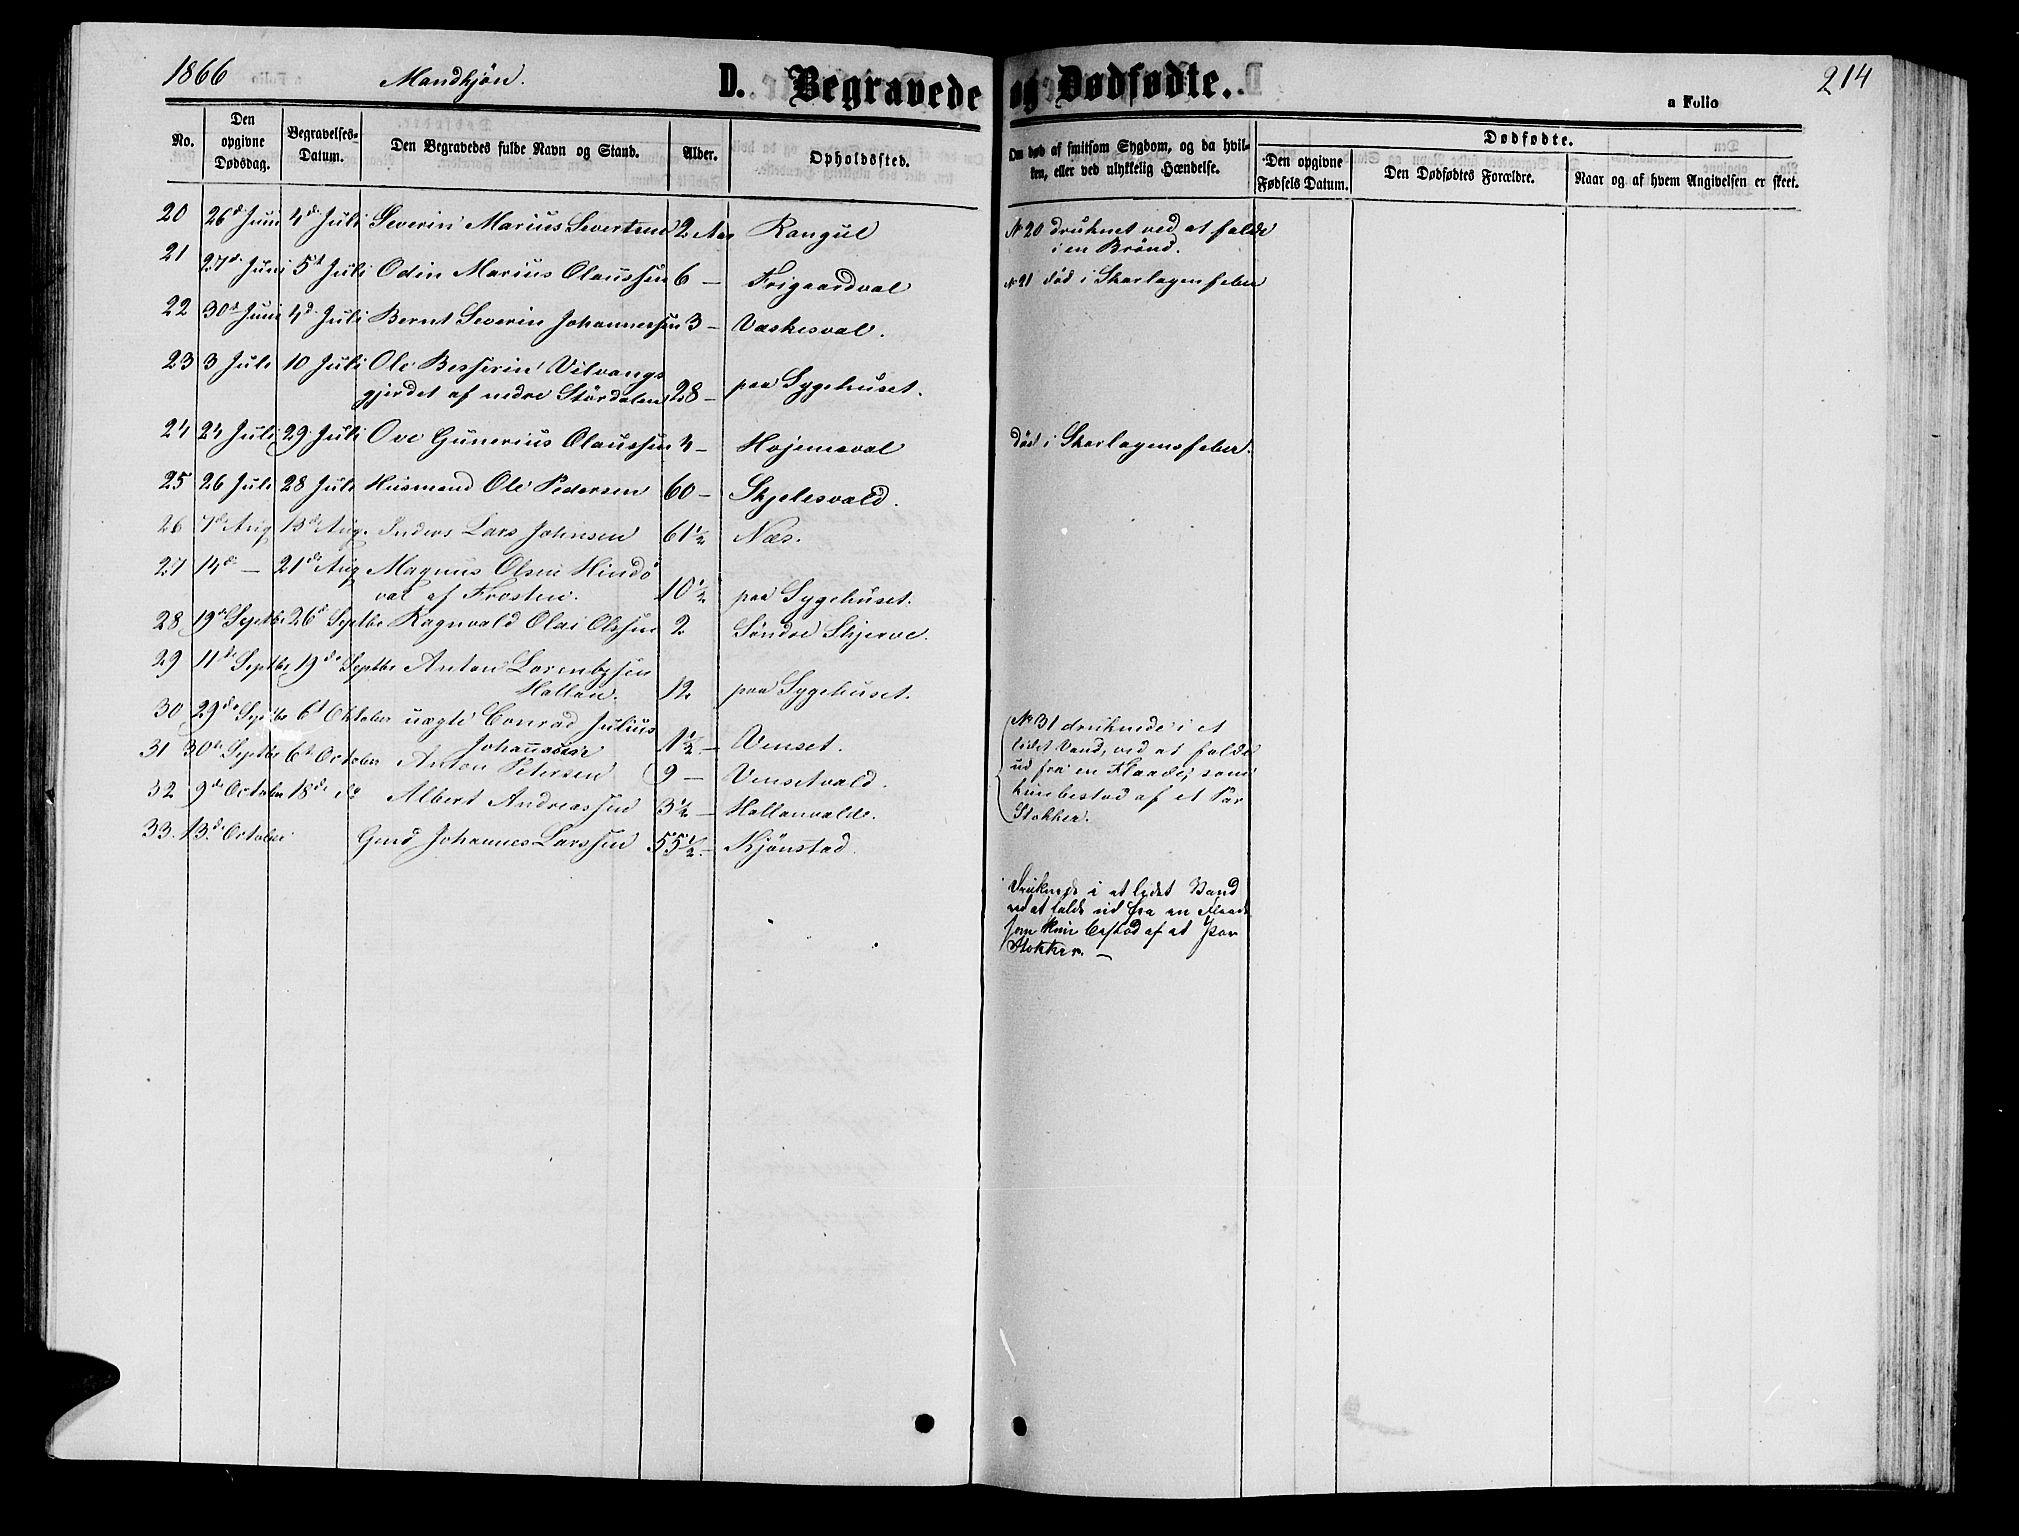 1866 Mandkjøn. D. Begravede og Dødfødte. a Folio 214
No. Den opgivne Dødsdag. Begravelses-Datum. Den Begravedes fulde Navn og Stand. Alder. Opholdssted. Om død af smitsom Sygdom, og da hvilken, eller ved ulykkelig Hændelse. Dødfødte.
Den opgivne Fødsels Datum. Den Dødfødtes Forældre. Naar og af hvem Angivelsen er skeet.
20 26d Juni 4d Juli Severin Marius Sivertsen 2 Aar Rangul No 20 druknet ved at falde
i en Brønd.
21 27d Juni 5t Juli Odin Marius Olaussen 6 — Frigaardval No 21 død i Skarlagensfeber
22 30d Juni 4d Juli Bernt Severin Johannessen 3 — Vaskesval.
23 3 Juli 10 Juli Ole Besserin Vilvangs
gjerdet af nedre Størdalen 28 — paa Sygehuset.
24 24 Juli 29 Juli Ove Gunerius Olaussen 4 — Hojemsval død i Skarlagensfeber.
25 26 Juli 28 Juli Husmand Ole Pedersen 60 — Skjelesvald.
26 7d Aug 13d Aug. Inders Lars Johnsen 61½ Næs.
27 14d — 21d Aug Magnus Olsen Hindø
val af Frosten. 10½ paa Sygehuset.
28 19d Septbr 26d Septbr Ragnvald Olai Olssen 2 Søndre Skjerve.
29 11d Septbr 19d Septbr Anton Lorentzsen
Hallan. 12 paa Sygehuset.
30 29d Septbr 6t October uægte Conrad Julius
Johanssen 1½ — Venset.
31 30d Septbr 6t October Anton Petersen 9 — Vensetvald.
No 31 druknede i et
lidet Vand, ved at falde
ud fra en Flaade, som
kun bestod af et Par
Stokker.
32 9d October 18d do Albert Andreassen 3½ — Hallanvalde.
33. 13d October Gmd Johannes Larssen 55½ — Kjønstad.
Druknede i et lidet Vand
ved at falde ud fra en Flaade
som kun bestod af et Par
Stokker. —